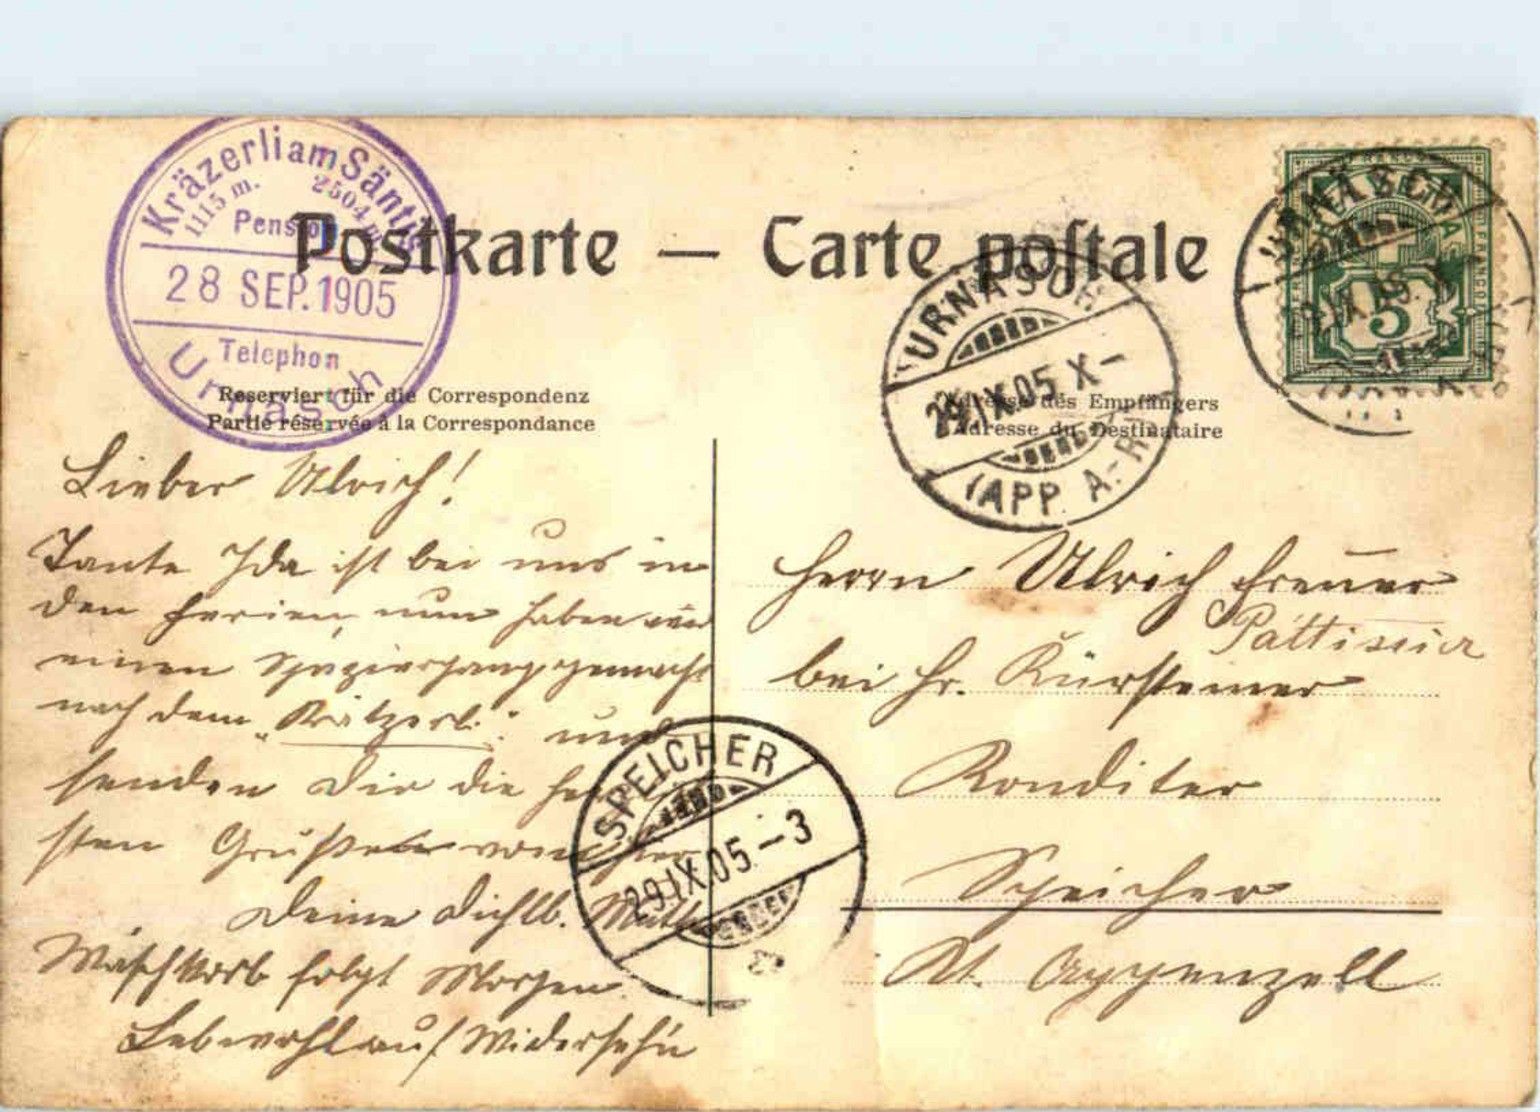 Kräzerli am Säntis
1115 m. 2504 m.
Pension
28 SEP. 1905
Telephon
Urnäsch
Postkarte — Carte postale
URNÄSCH
29.IX.05 X–
(APP. A.-RH)
URNÄSCH
5
Reserviert für die Correspondenz
Partie réservée à la Correspondance
Adresse des Empfängers
Adresse du Destinataire
Lieber Ulrich!
Tante Ida ist bei uns in
den Ferien, nun haben wir
einen Spaziergang gemacht
nach dem „Krätzerli“ und
senden Dir die
sten Grüße von hier
Deine Dichlb. Mutter
Waschkorb folgt Morgen
Lebewohl auf Widersehn
SPEICHER
29.IX.05 –3
Herrn Ulrich
Pattissier
bei Hr. Kürsteiner
Konditer
Speicher
Kt. Appenzell